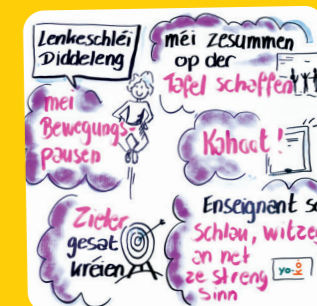 Lenkeschléi
Diddeleng
méi zesummen
op der
Tafel schaffen
mei
Bewegungs-
pausen
Kahoot!
Zieler
gesat
kréien
Enseignant
schlau, witzeg
an net
ze streng
sinn
yo-ko